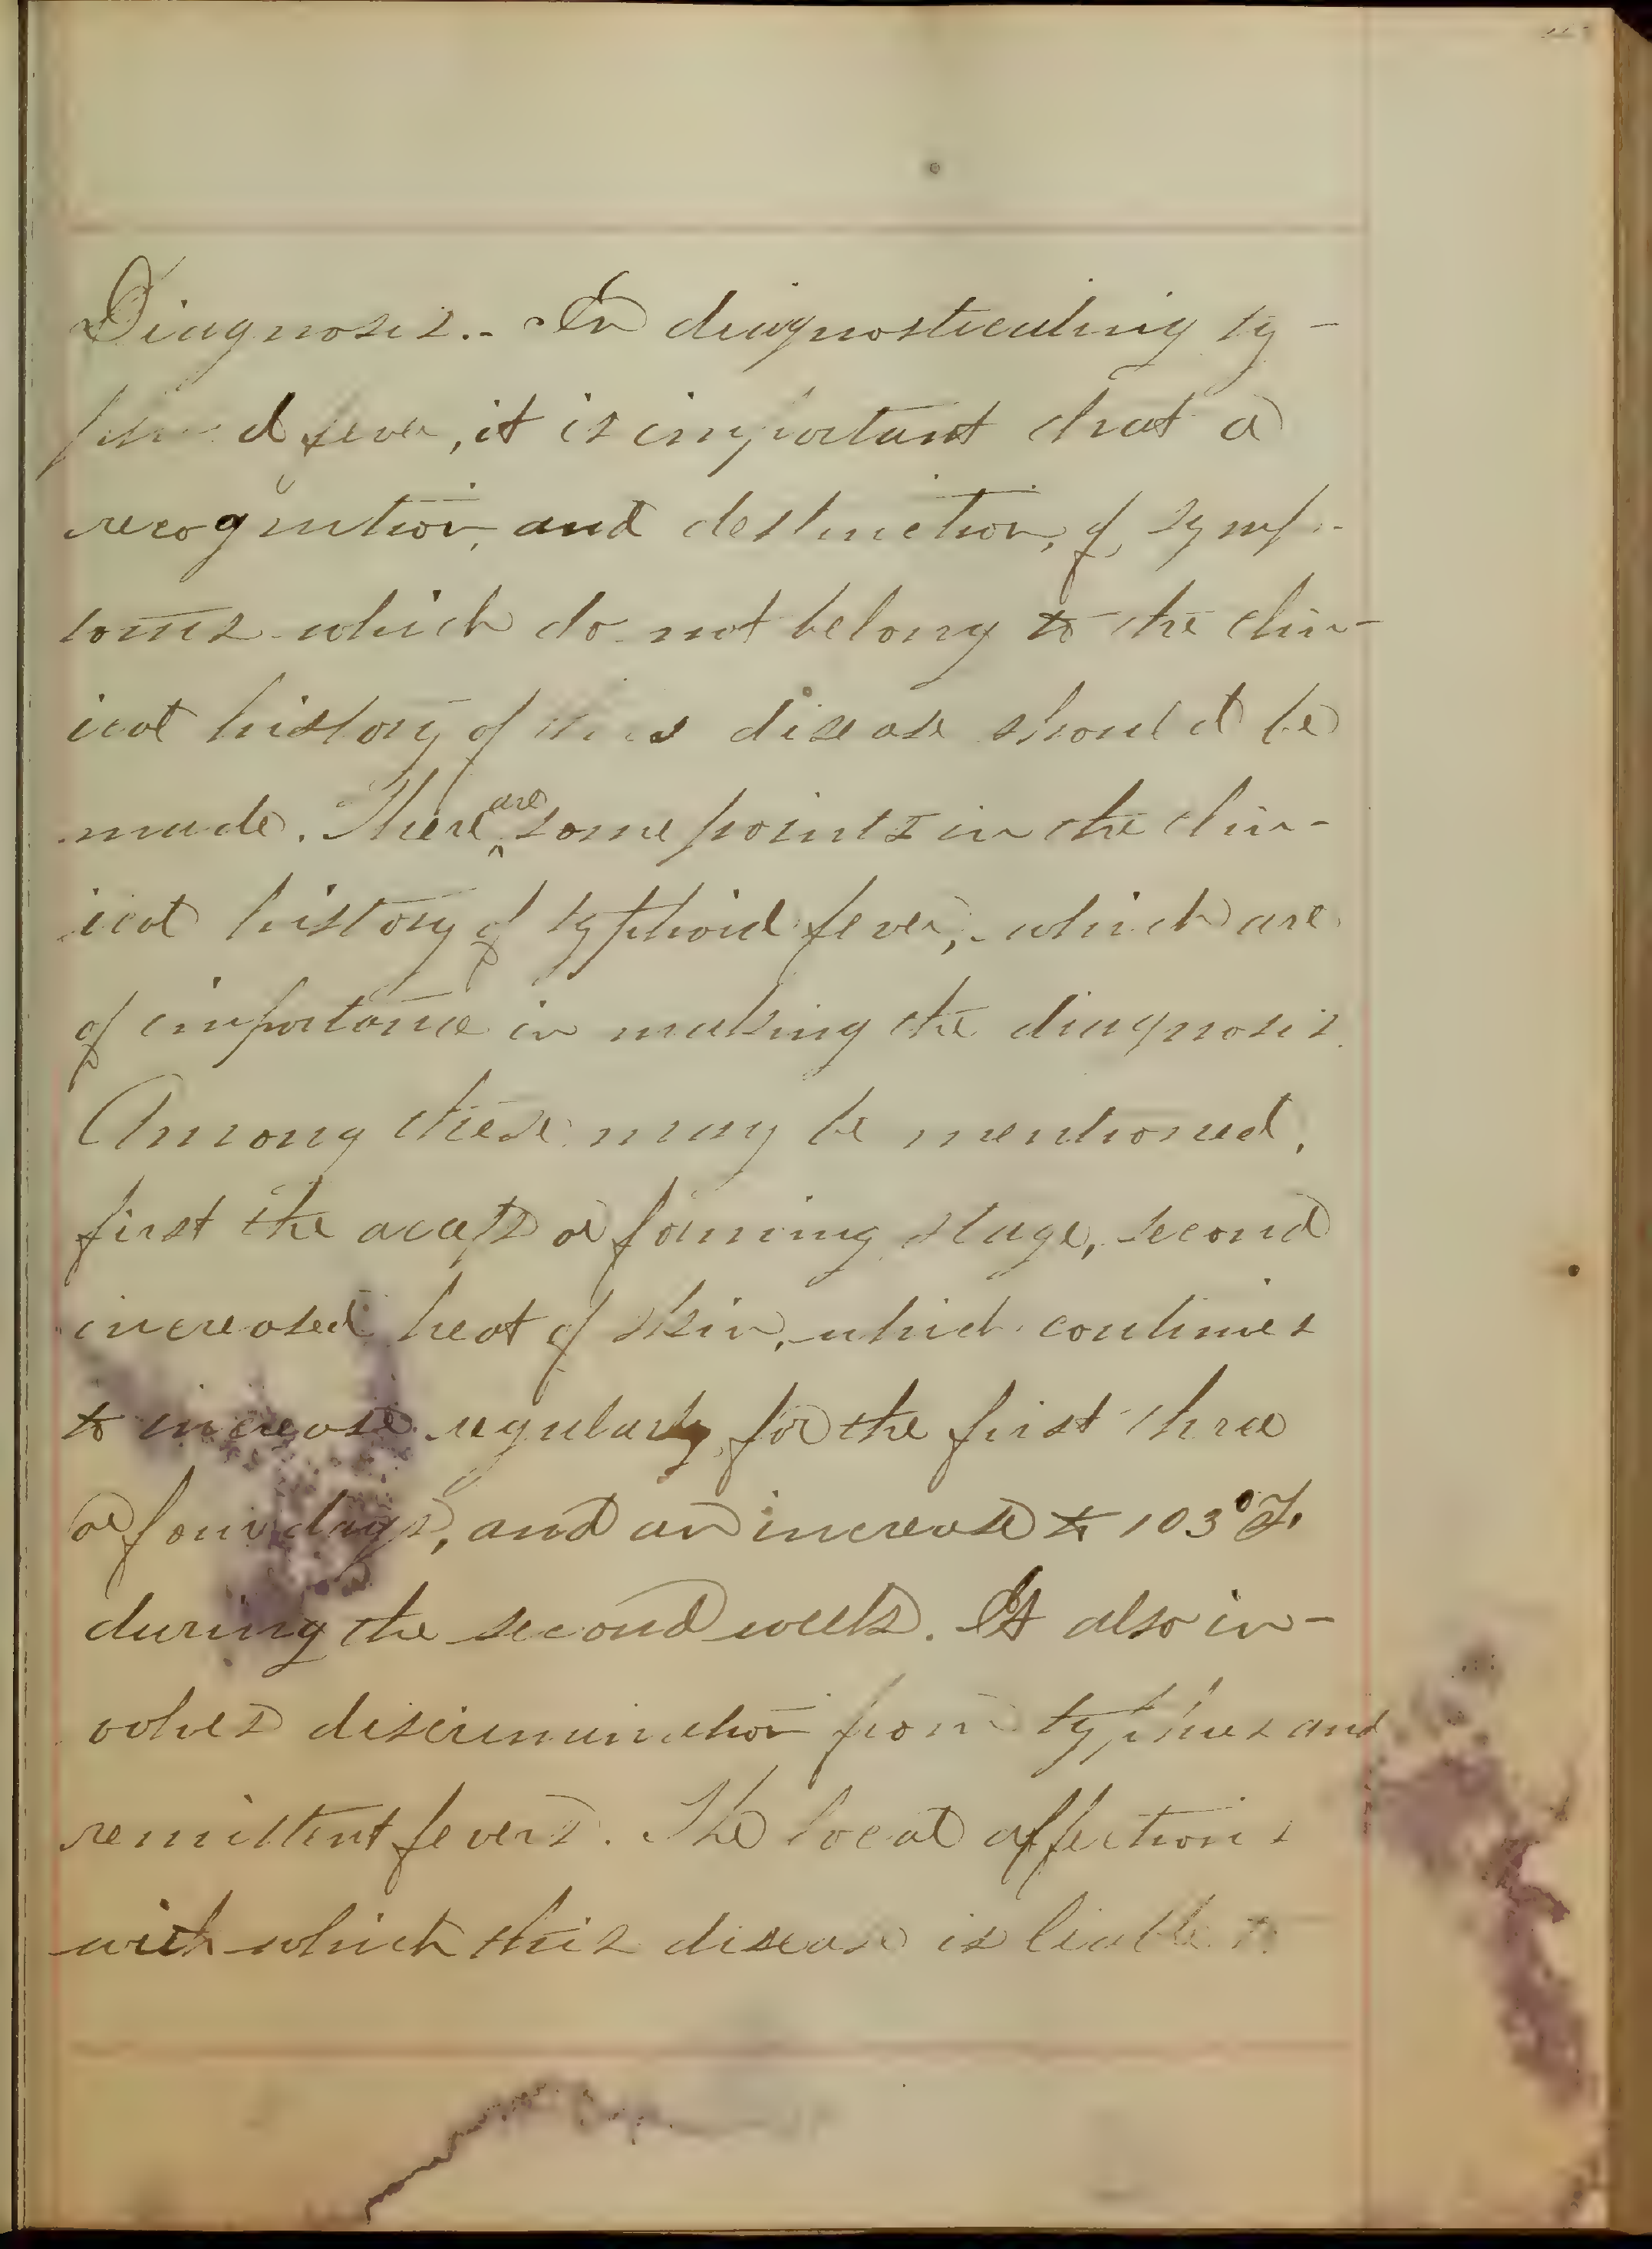 Diagnosis.- In diagnosticating ty-
phoid fever, it is important that a
recognition, and destinction, of symp-
toms which do not belong to the clin-
ical history of this disease should be
made. There are some points in the clin-
ical history of typhoid fever, which are
of importance in making the diagnosis.
Among these may be mentioned,
first the access or forming stage, second
increased heat of skin, which continues
to increase regularly for the first three
or four days, and an increase to 103° F.
during the second week. It also in-
volves discrimination from typhus and
remittent fevers. The local affections
with which this disease is liable to